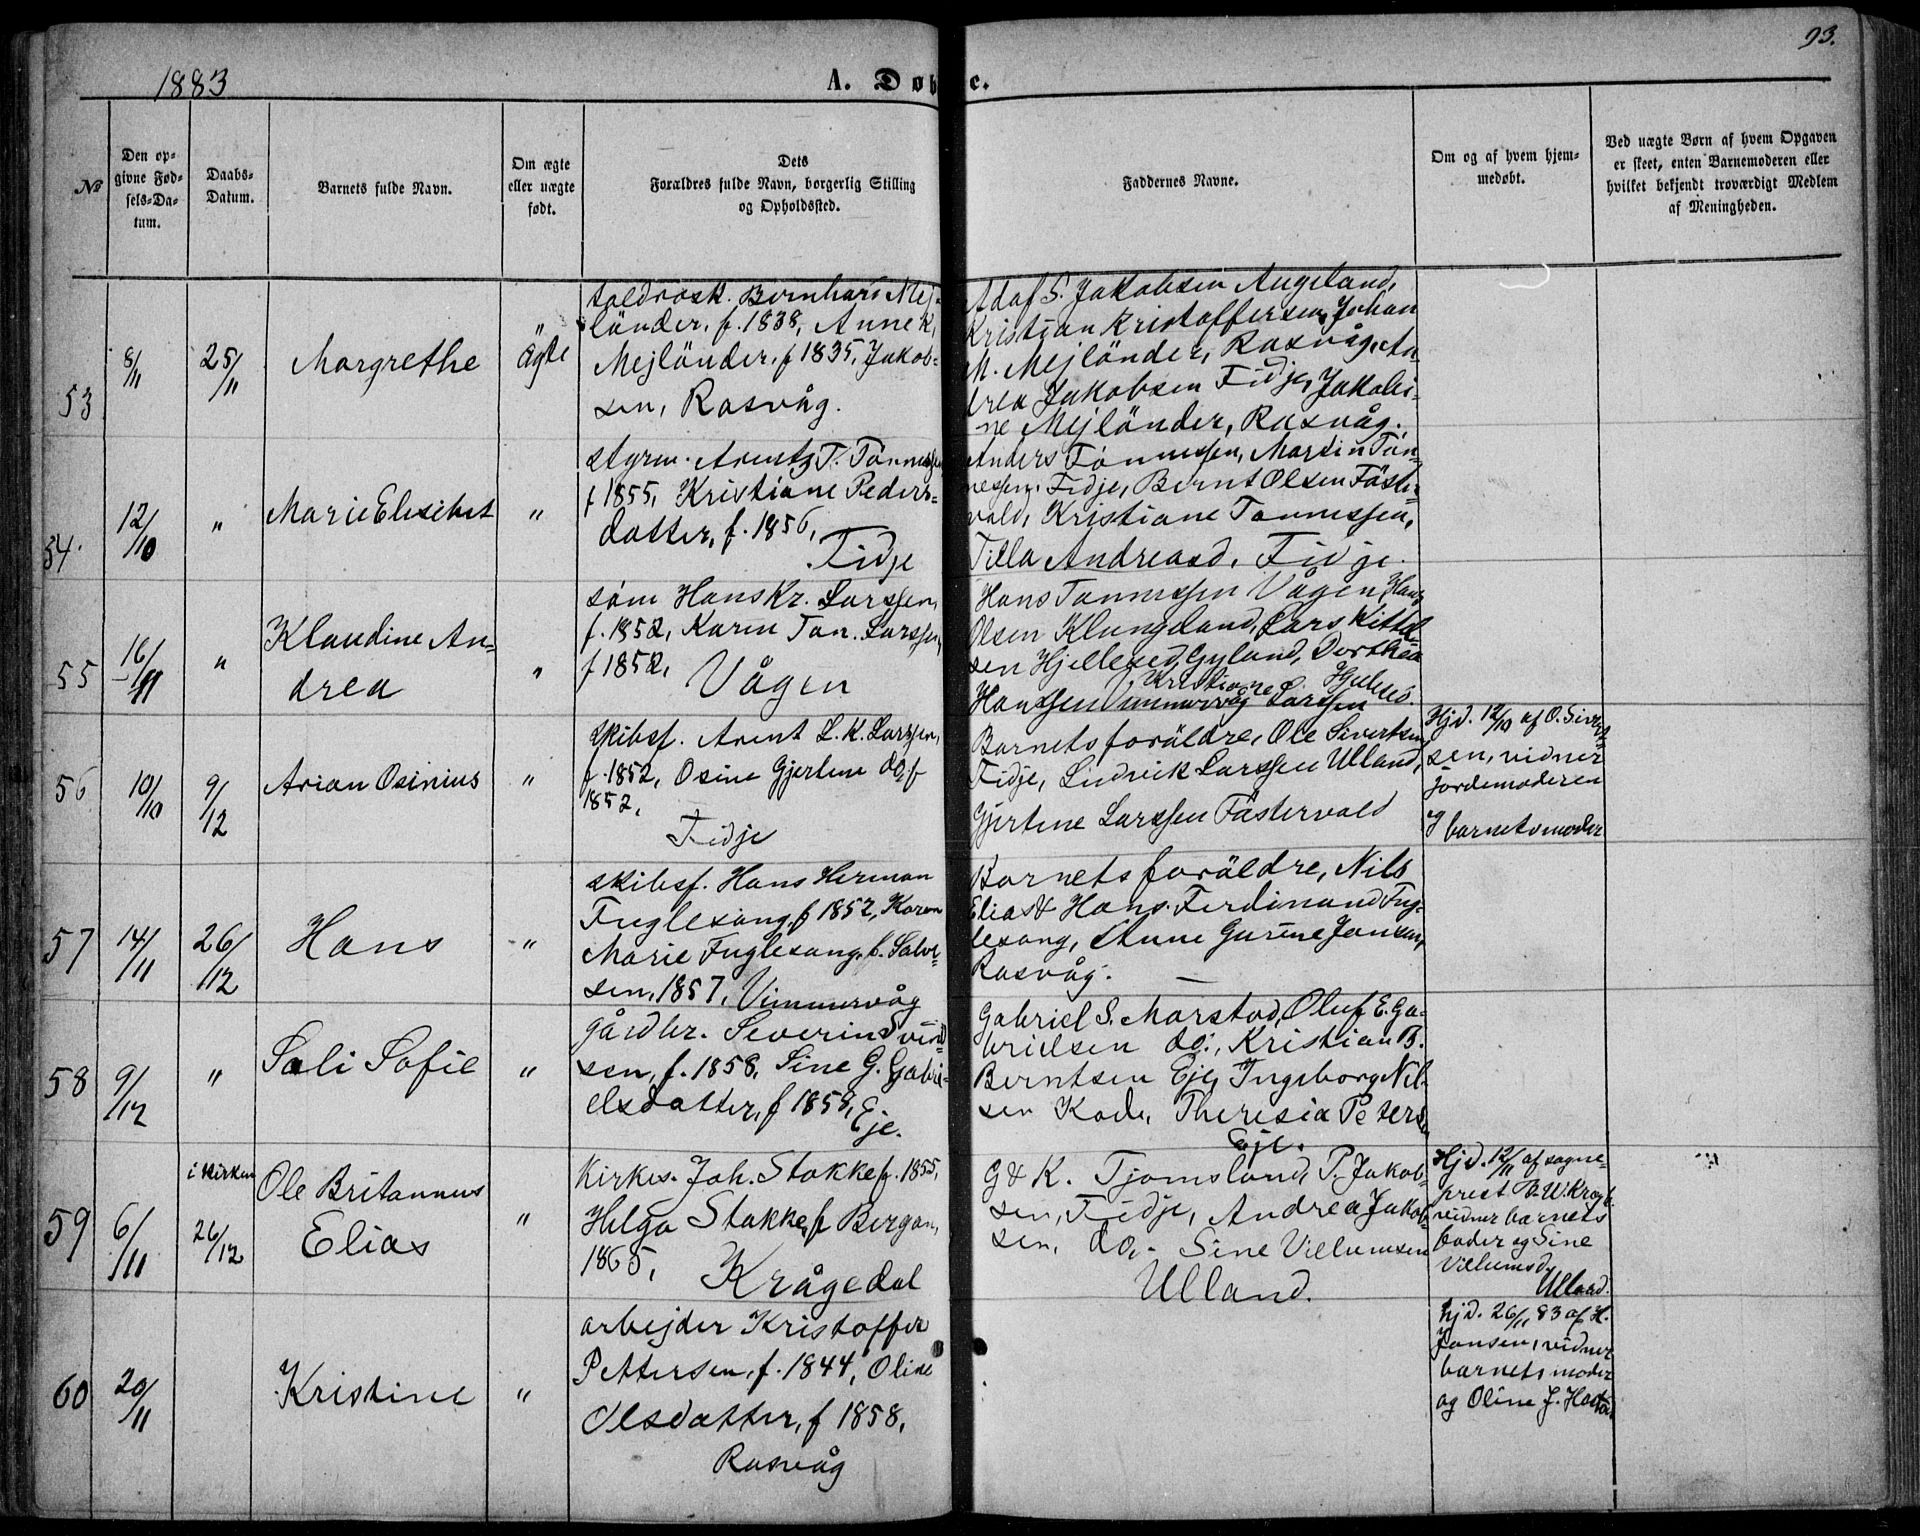 1883
A. Døb
e.
93.
No
Den op-
givne Fød-
sels-Da-
tum.
Daabs-
Datum.
Barnets fulde Navn.
Om ægte
eller uægte
født.
Dets
Forældres fulde Navn, borgerlig Stilling
og Opholdssted.
Faddernes Navne.
Om og af hvem hjem-
medøbt.
Ved uægte Børn af hvem Opgaven
er skeet, enten Barnemoderen eller
hvilket bekjendt troværdigt Medlem
af Meningheden.
53
8/11
25/11
Margrethe
ägte
Bernhard Mej-
länder, f. 1838, Anne K.
Mejländer, f 1835, Jakob-
sen, Rasvåg.
Adolf S. Jakobsen Angeland,
Kristian Kristoffersen, Johan
M. Mejländer, Rasvåg, An
drea Jakobsen Fidje, Jakobi-
ne Mejländer, Rasvåg.
54.
12/10
"
Marie Elisibet
"
styrm. Arentz T. Tönnessen
f 1855, Kristiane Peders-
datter, f. 1856,
Fidje
Anders Tönnessen, Martin Tön-
nessen, Fidje, Bernt Olsen Fäster-
vald, Kristiane Tönnessen,
Tilla Andreasd, Fidje.
55
16/11
"
Klaudine An-
drea
"
söm Hans Kr. Larssen,
f. 1852, Karen Tön. Larssen,
f 1852,
Vågen
Hans Tönnessen Vågen, Hans
Olsen Klungeland, Lars Kittel-
sen Hjellesed, Gyland, Dorthea
Kristiane Hjelsed.
Hanssen Vimmervåg Larssen
56
10/10
9/12
Arian Osinius
"
skibsf. Arent L. K. Larssen,
f. 1852, Osine Gjertine do, f
1852,
Fidje
Barnets foräldre, Ole Sivertsen,
Fidje, Ludvik Larssen Ulland,
Gjertine Larssen Fästervald
Hjd. 12/10 af O. Sivert-
sen, vidner
jordemoderen
og barnets moder
57
14/11
26/12
Hans
"
skibsf. Hans Herman
Fuglesang, f 1852, Karen
Marie Fuglesang, f. Salve-
sen, 1857, Vimmervåg
Barnets foräldre, Nils
Elias & Hans Ferdinand Fug-
lesang, Anne Gurine Jansen,
Rasvåg.
58
9/12
"
Sali Sofie
"
gårdbr. Severin Svend-
sen, f. 1858, Sine G. Gabri-
elsdatter, f 1858, Eje.
Gabriel S. Mårstad, Oluf E. Ga-
brielsen do., Kristian B.
Berntsen Eje, Ingeborg Nil-
sen Kode, Theresia Peters
Eje.
59
6/11
i kirken
26/12
Ole Britannus
Elias
"
Kirkes. Joh. Stakke f. 1855,
Helga Stakke, f Bergan,
1865,
Krågedal
G & K. Tjomsland, P. Jakob-
sen, Fidje, Andrea Jakob-
sen, do. Sine Villumsen
Ulland.
Hjd. 12/11 af sogne-
prest B. W. Krogh.
vidner barnets
fader og Sine
Villumsd,
Ulland.
60
20/11
Kristine
"
arbejder Kristoffer
Pettersen, f. 1844, Oline
Olsdatter, f 1858,
Rasvåg
hjd. 26/11 83 af H.
Jansen, vidner
barnets moder
og Oline J.